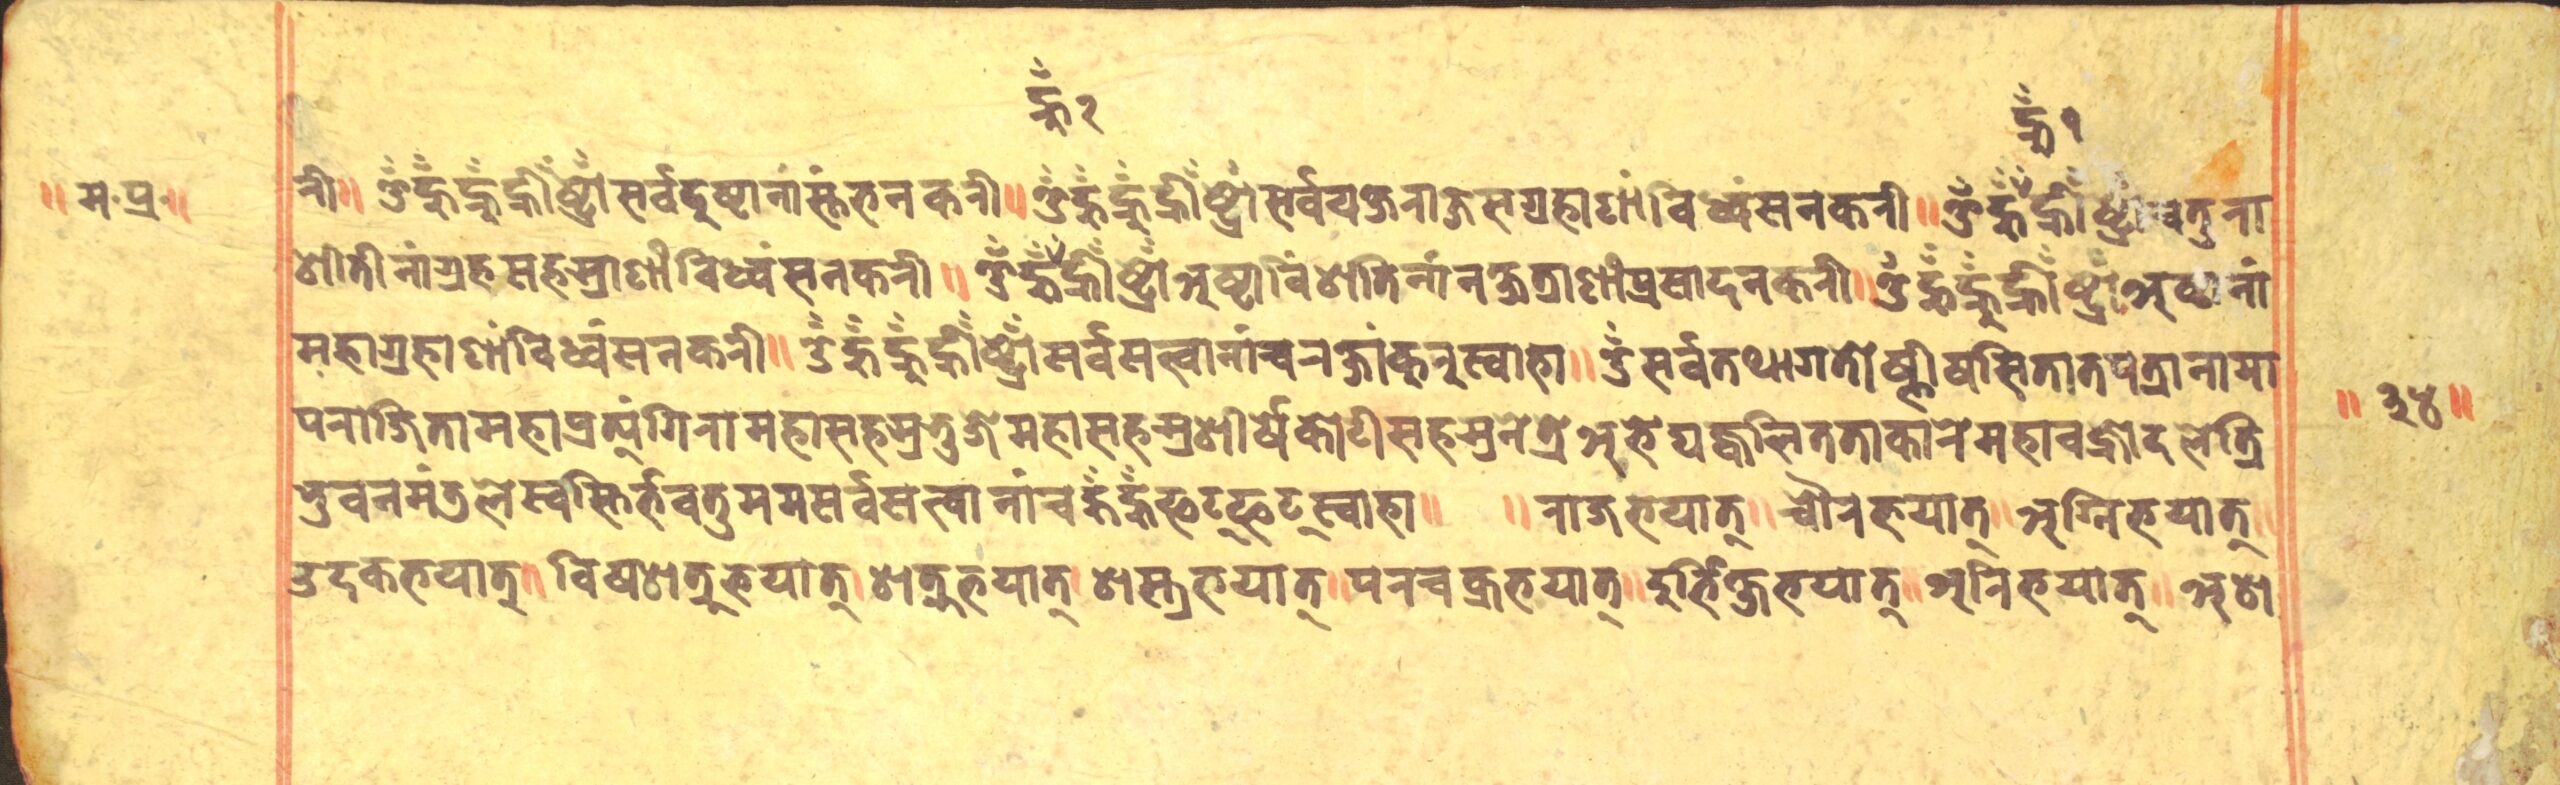 हूँ २ हूँ १
॥ म॰ प्र॰ ॥ री॥ ॐ हूँ हूँ ह्रीँ ष्ट्रोँ सर्वदुष्टानां स्तम्भनकरी॥ ॐ हूँ हूँ ह्रीँ ष्ट्रोँ सर्वयक्षराक्षसग्रहाणां विध्वंसनकरी॥ ॐ हूँ ह्रीँ ष्ट्रोँ चतुरा
शीतीनां ग्रहसहस्राणां विध्वंसनकरी॥ ॐ हूँ ह्रीँ ष्ट्रोँ अष्टाविंशतिनां नक्षत्राणां प्रसादनकरी॥ ॐ हूँ हूँ ह्रीँ ष्ट्रोँ अष्टानां
महाग्रहाणां विध्वंसनकरी॥ ॐ हूँ हूँ ह्रीँ ष्ट्रोँ सर्वसत्वानांच रक्षां कुरु स्वाहा॥ ॐ सर्वतथागतोष्णीषसितातपत्रानामा
पराजिता महाप्रत्यंगिरा महासहस्रभुजे महासहस्रशीर्षे कोटीसहस्रनेत्रे अभेद्यज्वलितताकारे महावज्रोदले त्रि
भुवनमंडले स्वस्तिर्भवतु मम सर्वसत्वानांच हूँ हूँ फट् फट् स्वाहा॥ ॥ राजभयात्॥ चौरभयात्॥ अग्निभयात्॥
उदकभयात्॥ विषशत्रुभयात्। शत्रुभयात्। शस्त्रभयात्॥ परचक्रभयात्॥ दुर्भिक्षभयात्॥ अरिभयात्॥ अश
॥ ३४ ॥